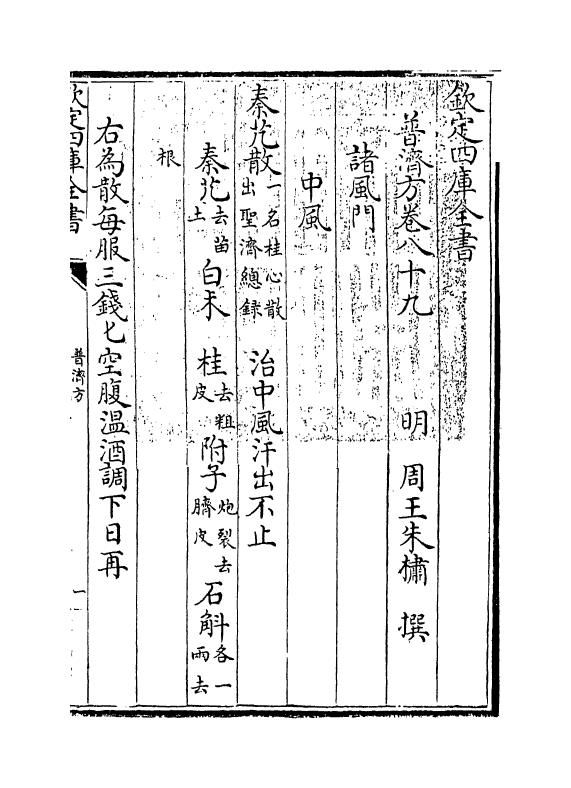 欽定四庫全書
普濟方卷八十九　明　周王朱橚　撰
諸風門
中風
秦艽散一名桂心散出聖濟總録　治中風汗出不止
秦艽去苗土　白术　桂去粗皮　附子炮裂去臍皮　石斛各一兩去
根
右為散每服三錢匕空腹温酒調下日再
欽定四庫全書
普濟方
一